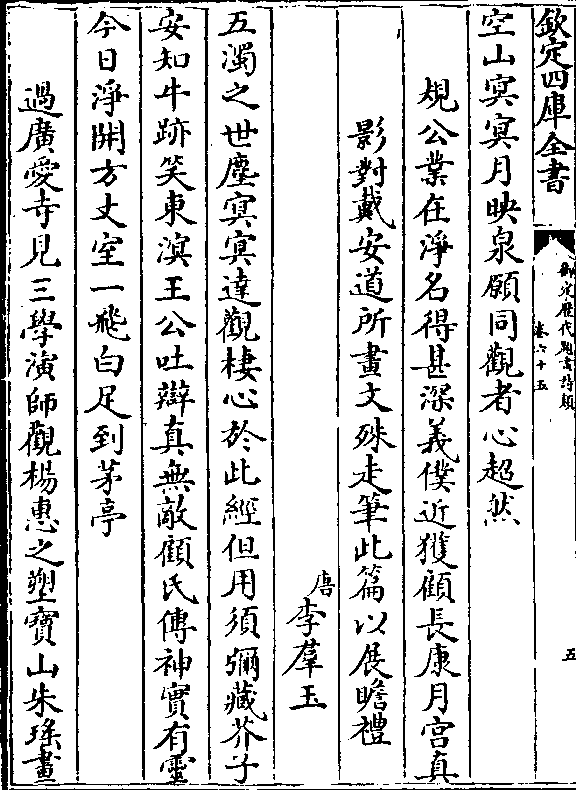 欽定四庫全書
御定歴代題畫詩類
卷六十五
五
空山冥冥月映泉願同觀者心超然
規公業在淨名得甚深義僕近獲顧長康月宮真
影對戴安道所畫文殊走筆此篇以展瞻禮
唐
李羣玉
五濁之世塵冥冥達觀棲心於此經但用須彌藏芥子
安知牛跡笑東溟王公吐辯真無敵顧氏傳神實有靈
今日淨開方丈室一飛白足到茅亭
過廣愛寺見三學演師觀楊惠之塑寶山朱瑤畫